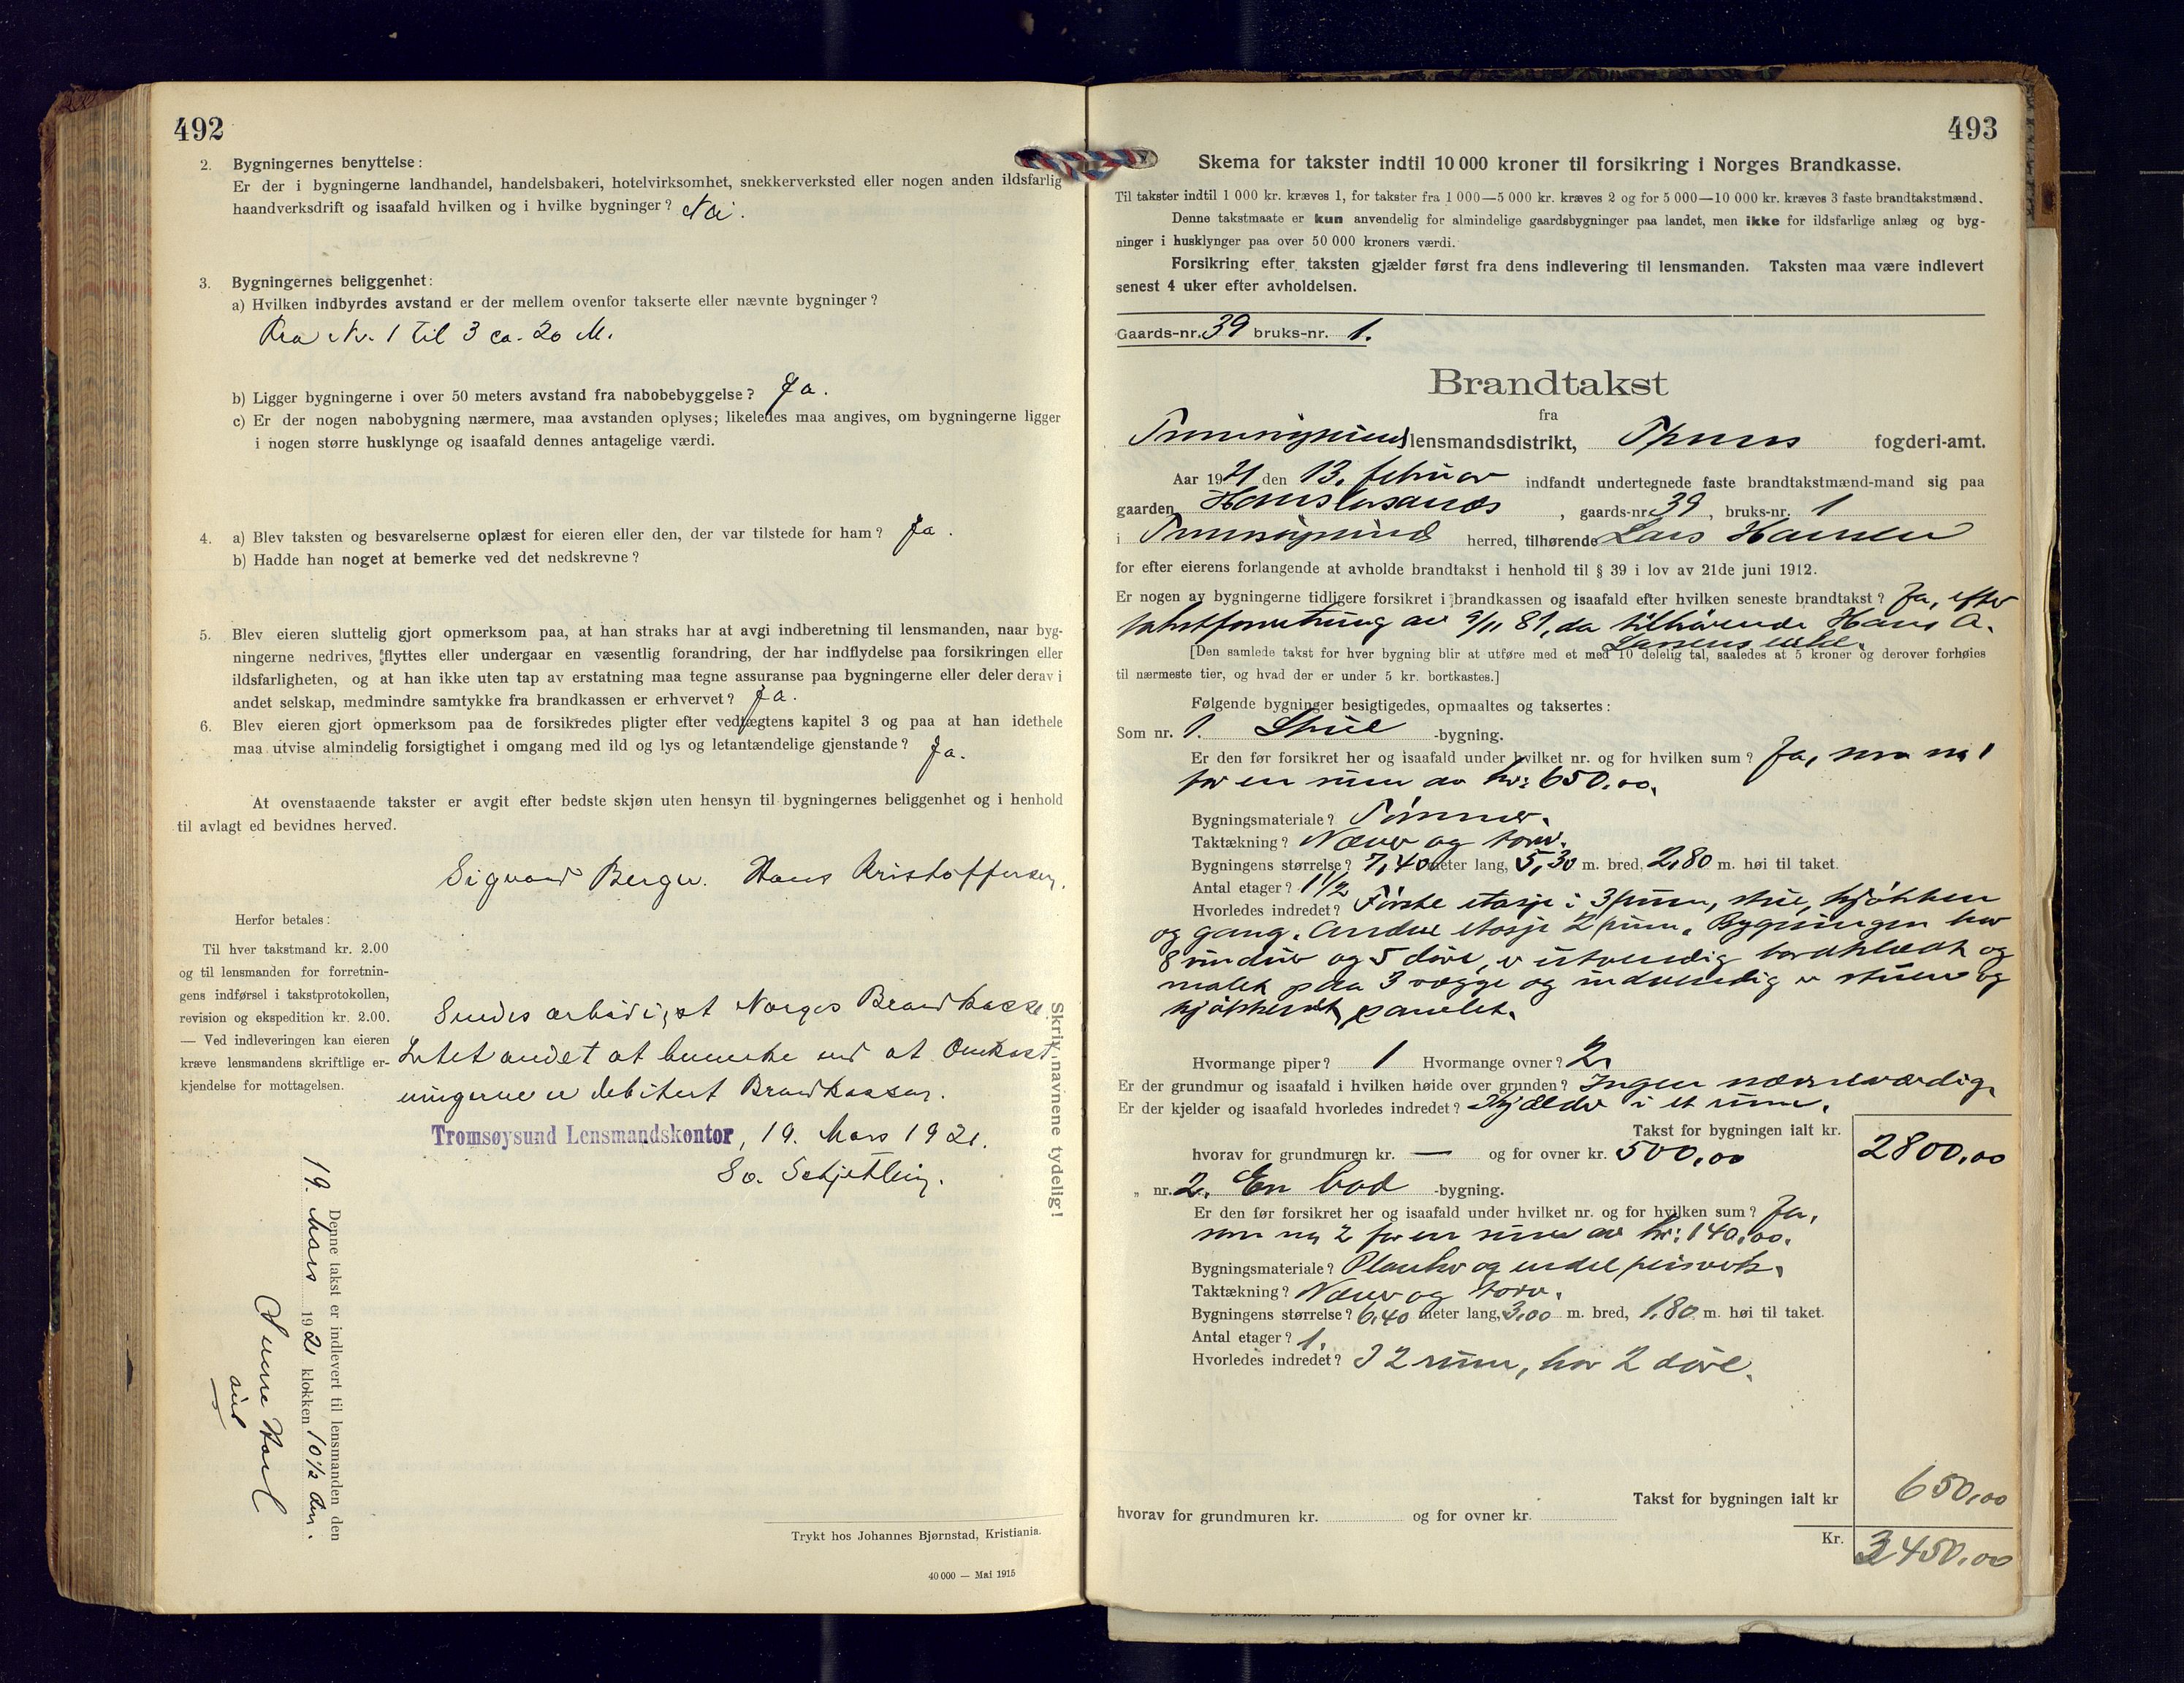 492
2. Bygningernes benyttelse:
Er der i bygningerne landhandel, handelsbakeri, hotelvirksomhet, snekkerverksted eller nogen anden ildsfarlig
haandverksdrift og isaafald hvilken og i hvilke bygninger? Nei.
3. Bygningernes beliggenhet:
a) Hvilken indbyrdes avstand er der mellem ovenfor takserte eller nævnte bygninger?
Fra Nr. 1 til 3 ca. 20 M.
b) Ligger bygningerne i over 50 meters avstand fra nabobebyggelse? Ja.
c) Er der nogen nabobygning nærmere, maa avstanden oplyses; likeledes maa angives, om bygningerne ligger
i nogen større husklynge og isaafald dennes antagelige værdi.
4. a) Blev taksten og besvarelserne oplæst for eieren eller den, der var tilstede for ham? Ja.
b) Hadde han noget at bemerke ved det nedskrevne?
5. Blev eieren sluttelig gjort opmerksom paa, at han straks har at avgi indberetning til lensmanden, naar byg-
ningerne nedrives, flyttes eller undergaar en væsentlig forandring, der har indflydelse paa forsikringen eller
ildsfarligheten, og at han ikke uten tap av erstatning maa tegne assuranse paa bygningerne eller deler derav i
andet selskap, medmindre samtykke fra brandkassen er erhvervet? Ja.
6. Blev eieren gjort opmerksom paa de forsikredes pligter efter vedtægtens kapitel 3 og paa at han idethele
maa utvise almindelig forsigtighet i omgang med ild og lys og letantændelige gjenstande? Ja.
At ovenstaaende takster er avgit efter bedste skjøn uten hensyn til bygningernes beliggenhet og i henhold
til avlagt ed bevidnes herved.
Sigvard Berger. Hans Kristoffersen.
Herfor betales:
Til hver takstmand kr. 2.00
og til lensmanden for forretnin-
gens indførsel i takstprotokollen,
revision og ekspedition kr. 2.00.
— Ved indleveringen kan eieren
kræve lensmandens skriftlige er-
kjendelse for mottagelsen.
Sendes ærbødigst Norges Brandkasse.
Intet andet at bemerke end at Omkost
ningerne er debitert Brandkassen.
Tromsøysund Lensmandskontor, 19. Mars 1921.
So. Schjetlein.
Skriv navnene tydelig!
Denne takst er indlevert til lensmanden den
19. Mars 1921 klokken 10 1/2 fm.
Trykt hos Johannes Bjørnstad, Kristiania.
40 000 — Mai 1915
493
Skema for takster indtil 10 000 kroner til forsikring i Norges Brandkasse.
Til takster indtil 1 000 kr. kræves 1, for takster fra 1 000—5 000 kr. kræves 2 og for 5 000—10 000 kr. kræves 3 faste brandtakstmænd.
Denne takstmaate er kun anvendelig for almindelige gaardsbygninger paa landet, men ikke for ildsfarlige anlæg og byg-
ninger i husklynger paa over 50 000 kroners værdi.
Forsikring efter taksten gjælder først fra dens indlevering til lensmanden. Taksten maa være indlevert
senest 4 uker efter avholdelsen.
Gaards-nr. 39 bruks-nr. 1.
Brandtakst
fra
Tromsøysund lensmandsdistrikt, Troms fogderi-amt.
Aar 1921 den 13. februar indfandt undertegnede faste brandtakstmænd-mand sig paa
gaarden Hans Larsanes, gaards-nr. 39, bruks-nr. 1
i Tromsøysund herred, tilhørende Lars Hansen
for efter eierens forlangende at avholde brandtakst i henhold til § 39 i lov av 21de juni 1912.
Er nogen av bygningerne tidligere forsikret i brandkassen og isaafald efter hvilken seneste brandtakst? Ja, efter
takstforretning av 9/11 81, da tilhørende Hans A.
Larsens enke.
[Den samlede takst for hver bygning blir at utføre med et med 10 delelig tal, saaledes at 5 kroner og derover forhøies
til nærmeste tier, og hvad der er under 5 kr. bortkastes.]
Følgende bygninger besigtigedes, opmaaltes og taksertes:
Som nr. 1. Stue -bygning.
Er den før forsikret her og isaafald under hvilket nr. og for hvilken sum? Ja, som nr 1
for en sum av kr: 650,00.
Bygningsmateriale? Tømmer.
Taktækning? Næver og torv.
Bygningens størrelse? 7,40 meter lang, 5,30 m. bred, 2,80 m. høi til taket.
Antal etager? 1 1/2
Hvorledes indredet? Første etasje i 3 rum, stue, kjøkken
og gang. Anden etasje 2 rum. Bygningen har
8 vinduer og 5 døre, er utvendig bordklædt og
malet paa 3 vægge og indvendig er stuen og
kjøkkenet panelet.
Hvormange piper? 1 Hvormange ovner? 2.
Er der grundmur og isaafald i hvilken høide over grunden? Ingen nævneværdig.
Er der kjelder og isaafald hvorledes indredet? Kjælder i et rum.
Takst for bygningen ialt kr.
hvorav for grundmuren kr. — og for ovner kr. 500,00 2800,00
„ nr. 2. En bod -bygning.
Er den før forsikret her og isaafald under hvilket nr. og for hvilken sum? Ja,
som nr 2 for en sum av kr: 140,00.
Bygningsmateriale? Planker og endel reisverk.
Taktækning? Næver og torv.
Bygningens størrelse? 6,40 meter lang, 3,00 m. bred, 1,80 m. høi til taket.
Antal etager? 1.
Hvorledes indredet? I 2 rum, har 2 døre.
Takst for bygningen ialt kr 650,00
hvorav for grundmuren kr. og for ovner kr.
Kr. 3450,00